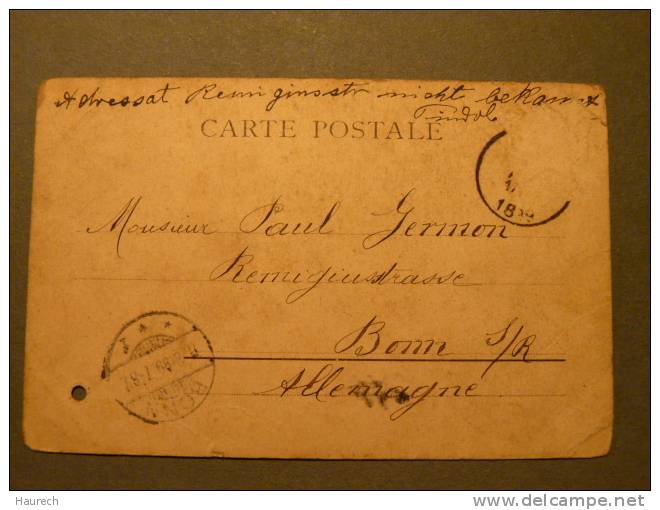 Adressat Remiginsstr nicht bekannt
CARTE POSTALE
Monsieur Paul Germon
Remigiusstrasse
Bonn S/R
Allemagne
BONN
Haurech
delcampe.net